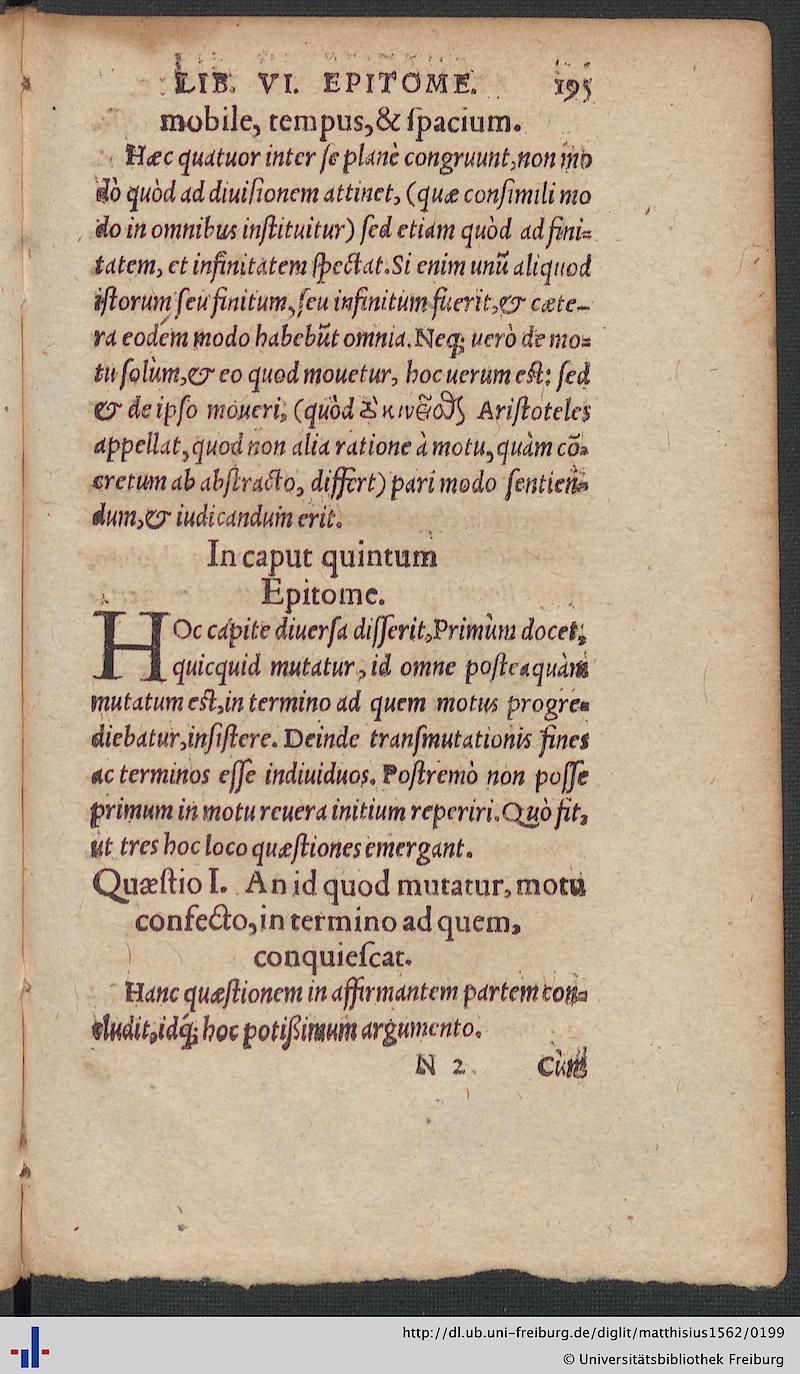 LIB. VI. EPITOME. 195
mobile, tempus, & ſpacium.
Hæc quatuor inter ſe planè congruunt, non mo
dò quòd ad diuiſionem attinet, (quæ conſimili mo
do in omnibus inſtituitur) ſed etiam quòd ad fini=
tatem, et infinitatem ſpectat. Si enim unũ aliquod
iſtorum ſeu finitum, ſeu infinitum fuerit, & cæte-
ra eodem modo habebũt omnia. Neq; uerò de mo=
tu ſolùm, & eo quod mouetur, hoc uerum eſt: ſed
& de ipſo moueri, (quòd Ariſtoteles
appellat, quod non alia ratione à motu, quàm cõ=
cretum ab abſtracto, differt) pari modo ſentien=
dum, & iudicandum erit.
In caput quintum
Epitome.
HOc capite diuerſa diſſerit, Primùm docet,
quicquid mutatur, id omne poſteaquàm
mutatum eſt, in termino ad quem motus progre=
diebatur, inſiſtere. Deinde tranſmutationis fines
ac terminos eſſe indiuiduos. Poſtremò non poſſe
primum in motu reuera initium reperiri. Quò fit,
ut tres hoc loco quæſtiones emergant.
Quæſtio I. An id quod mutatur, motu
confecto, in termino ad quem,
conquieſcat.
Hanc quæſtionem in affirmantem partem con=
cludit, idq́; hoc potißimum argumento.
N 2 Cùm
http://dl.ub.uni-freiburg.de/diglit/matthisius1562/0199
© Universitätsbibliothek Freiburg